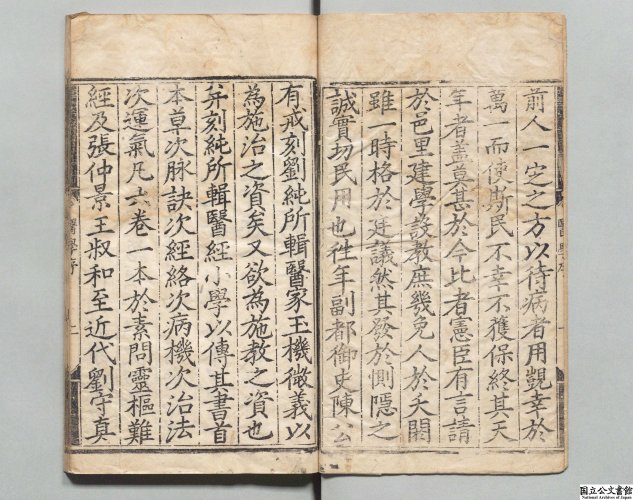 前人一定之方以待病者用覬幸於
萬一而使斯民不幸不獲保終其天
年者蓋莫甚於今比者憲臣有言請
於邑里建學設教庶幾免人於夭閼
雖一時格於廷議然其發於惻隱之
誠實切民用也徃年副都御史陳公
有戒刻劉純所輯醫家玉機微義以
為施治之資矣又欲為施教之資也
并刻純所輯醫經小學以傳其書首
本草次脉訣次經絡次病機次治法
次運氣凡六卷一本於素問靈樞難
經及張仲景王叔和至近代劉守真
醫學序
二
国立公文書館
National Archives of Japan